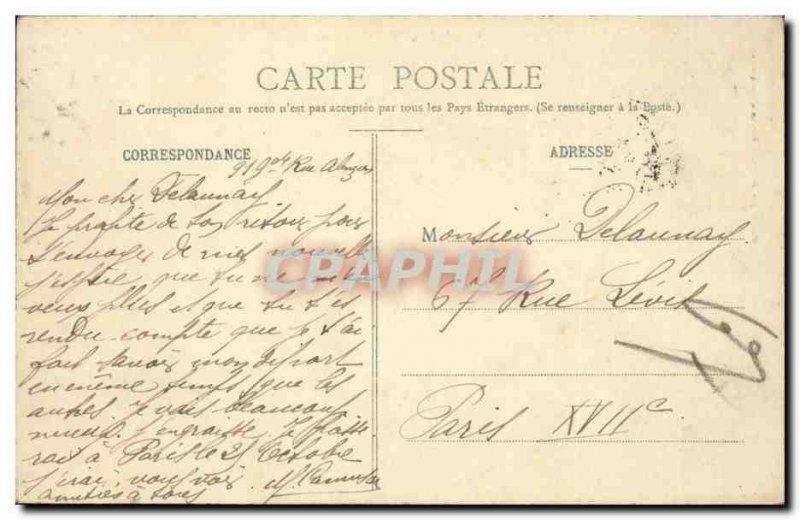 CARTE POSTALE
La Correspondance au recto n'est pas acceptée par tous les Pays Étrangers. (Se renseigner à la Poste.)
CORRESPONDANCE
ADRESSE
Rue
Mon cher Delaunay
Je profite de ton retour pour
t'envoyer de mes nouvelles
j'espère que tu ne m'en
veux plus et que tu t'es
rendu compte que je t'ai
fait savoir mon départ
en même temps que les
autres. Je vais beaucoup
mieux. J'engraisse. Je
rai à Paris le 25 Octobre
j'irai vous voir. M.
amitiés à tous
Monsieur Delaunay
67 Rue Lévis
Paris XVIIe
CPAPHIL